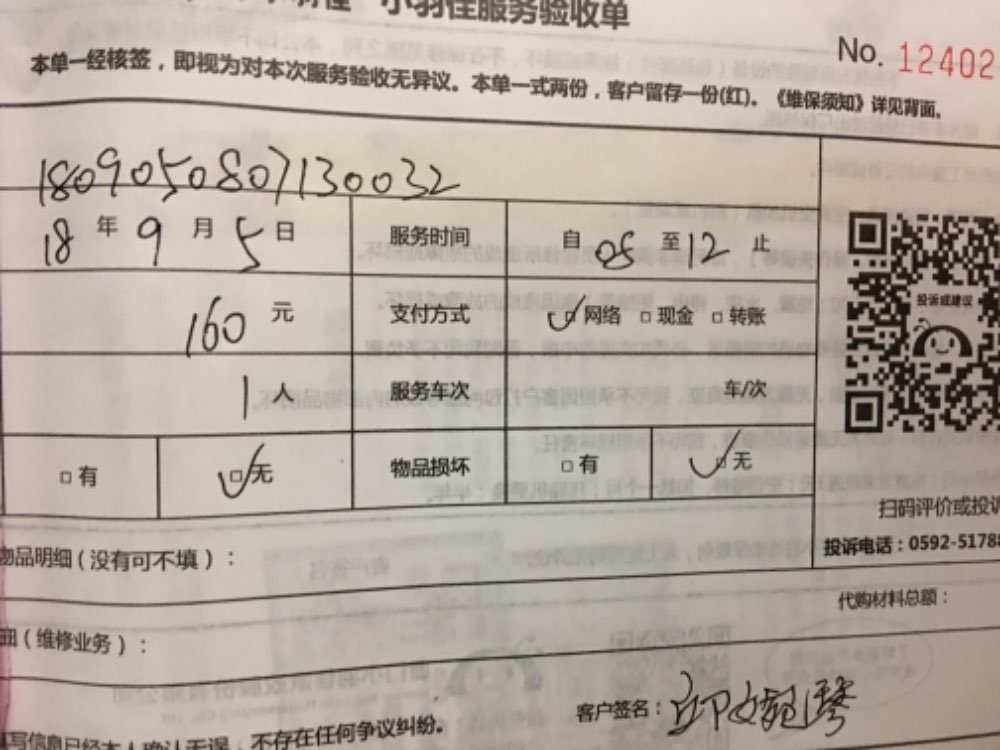 小羽佳服务验收单
No. 12402
本单一经核签，即视为对本次服务验收无异议。本单一式两份，客户留存一份(红)。《维保须知》详见背面。
1809050807130032
18 年 9 月 5 日 服务时间 自 08 至 12 止
160 元 支付方式 网络 现金 转账
1 人 服务车次 车/次
有 无 物品损坏 有 无
投诉或建议
扫码评价或投诉
投诉电话：0592-51788
物品明细（没有可不填）：
代购材料总额：
细（维修业务）：
客户签名：
写信息已经本人确认无误，不存在任何争议纠纷。